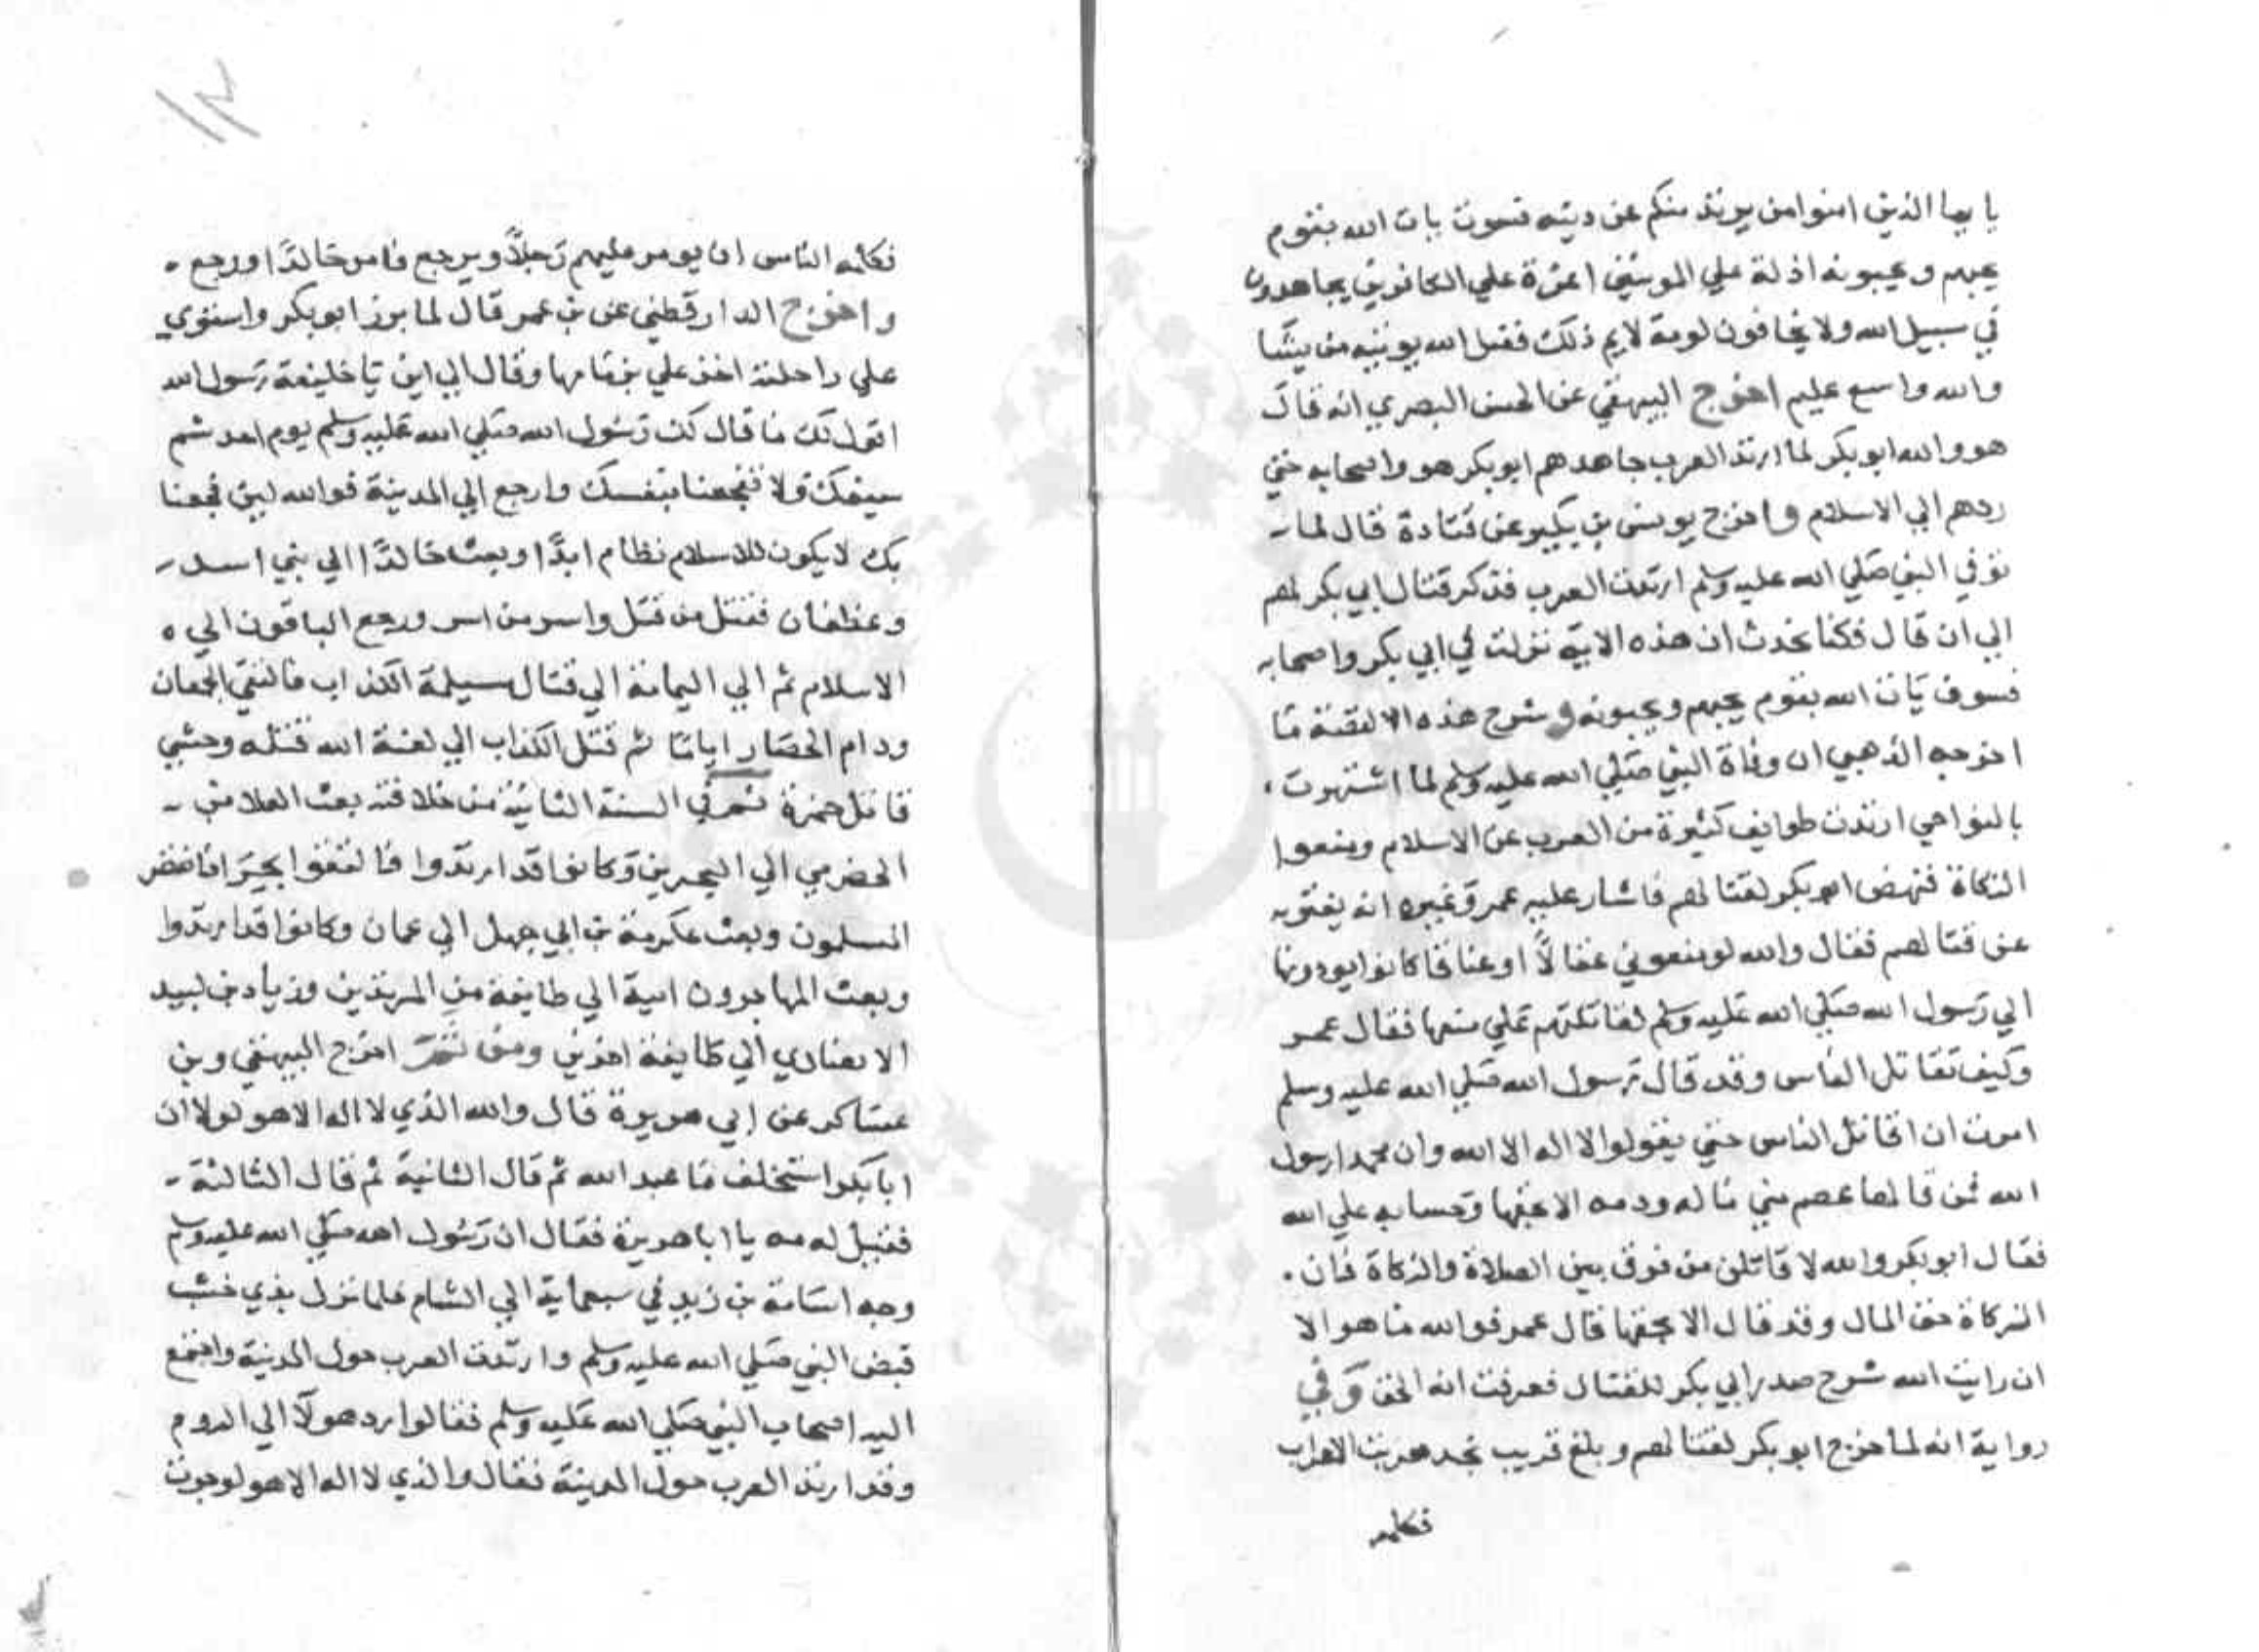 يا يها الذين امنوا من يرتد منكم عن دينه فسوف يات الله بقوم
يحبهم و يحبونه اذلة علي المومنين اعزة علي الكافرين يجاهدون
في سبيل الله ولا يخافون لومة لايم ذلك فضل الله يوتيه من يشا
والله واسع عليم اخرج البيهقي عن الحسن البصري انه قال
هو والله ابو بكر لما ارتد العرب جاهدهم ابو بكر هو واصحابه حتي
ردهم الي الاسلام واخرج يونس بن بكير عن قتادة قال لما
توفي النبي صلي الله عليه وسلم ارتدت العرب فذكر قتال ابي بكر لهم
الي ان قال فكنا نحدث ان هذه الاية نزلت في ابي بكر واصحابه
فسوف يات الله بقوم يحبهم ويحبونه و شرح هذه القصة ما
اخرجه الذهبي ان وفاة النبي صلي الله عليه وسلم لما اشتهرت
بالنواحي ارتدت طوايف كثيرة من العرب عن الاسلام ومنعوا
الزكاة فنهض ابو بكر لقتالهم فاشار عليه عمر وغيره انه يفتر
عن قتالهم فقال والله لو منعوني عقالًا او عناقا كانوا يودونها
الي رسول الله صلي الله عليه وسلم لقاتلتهم علي منعها فقال عمر
وكيف تقاتل الناس وقد قال رسول الله صلي الله عليه وسلم
امرت ان اقاتل الناس حتي يقولوا لا اله الا الله وان محمدا رسول
الله فمن قالها عصم مني ماله ودمه الا بحقها وحسابه علي الله
فقال ابو بكر والله لا قاتلن من فرق بين الصلاة والزكاة فان
الزكاة حق المال وقد قال الا بحقها قال عمر فوالله ما هو الا
ان رايت الله شرح صدر ابي بكر للقتال فعرفت انه الحق وفي
رواية انه لما خرج ابو بكر لقتالهم وبلغ قريب نجد هربت الاعراب
فكلمه
١٣
فكلمه الناس ان يومر عليهم رجلًا ويرجع فامر خالدًا ورجع
واخرج الدارقطني عن بن عمر قال لما برز ابو بكر واستوي
علي راحلته اخذ علي بزمامها وقال الي اين يا خليفة رسول الله
اقول لك ما قال لك رسول الله صلي الله عليه وسلم يوم احد شم
سيفك ولا تفجعنا بنفسك وارجع الي المدينة فوالله لين فجعنا
بك لا يكون للاسلام نظام ابدًا وبعث خالدًا الي بني اسد
وغطفان فقتل من قتل واسر من اسر ورجع الباقون الي
الاسلام ثم الي اليمامة الي قتال مسيلمة الكذاب فالتقي الجمعان
ودام الحصار اياما ثم قتل الكذاب الي لعنة الله قتله وحشي
قاتل حمزة ثم في السنة الثانية من خلافته بعث العلا بن
الحضرمي الي البحرين وكانوا قد ارتدوا فالتقوا بجيرا فانتصر
المسلمون وبعث عكرمة بن ابي جهل الي عمان وكانوا قد ارتدوا
وبعث المهاجرون امية الي طايفة من المرتدين وزياد بن لبيد
الانصاري الي طايفة اخري ومن ثم اخرج البيهقي وبن
عساكر عن ابي هريرة قال والله الذي لا اله الا هو لولا ان
ابا بكر استخلف ما عبد الله ثم قال الثانية ثم قال الثالثة
فقيل له مه يا ابا هريرة فقال ان رسول الله صلي الله عليه وسلم
وجه اسامة بن زيد في سبعماية الي الشام فلما نزل بذي خشب
قبض النبي صلي الله عليه وسلم وارتدت العرب حول المدينة واجتمع
اليه اصحاب النبي صلي الله عليه وسلم فقالوا رد هولا الي الروم
وقد ارتد العرب حول المدينة فقال والذي لا اله الا هو لو جرت